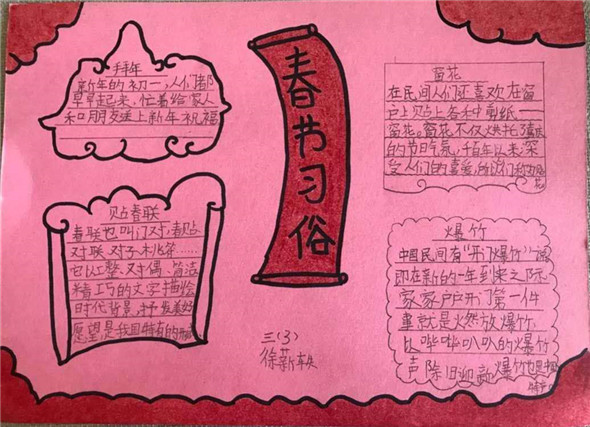 春节习俗
拜年
新年的初一,人们都
早早起来,忙着给家人
和朋友送上新年祝福
贴春联
春联也叫门对、春贴
对联、对子、桃符……
它以工整、对偶、简洁
精巧的文字描绘
时代背景,抒发美好
愿望是我国特有的
窗花
在民间人们还喜欢在窗
户上贴上各种剪纸——
窗花。窗花不仅烘托了
的节日气氛,千百年以来,深
受人们的喜爱,所以
窗花
爆竹
中国民间有“开门爆竹”一说
即在新的一年到来之际
家家户户开门第一件
事就是燃放爆竹,
以哔哔叭叭的爆竹
声除旧迎新爆竹也
三(3)
徐薪轶